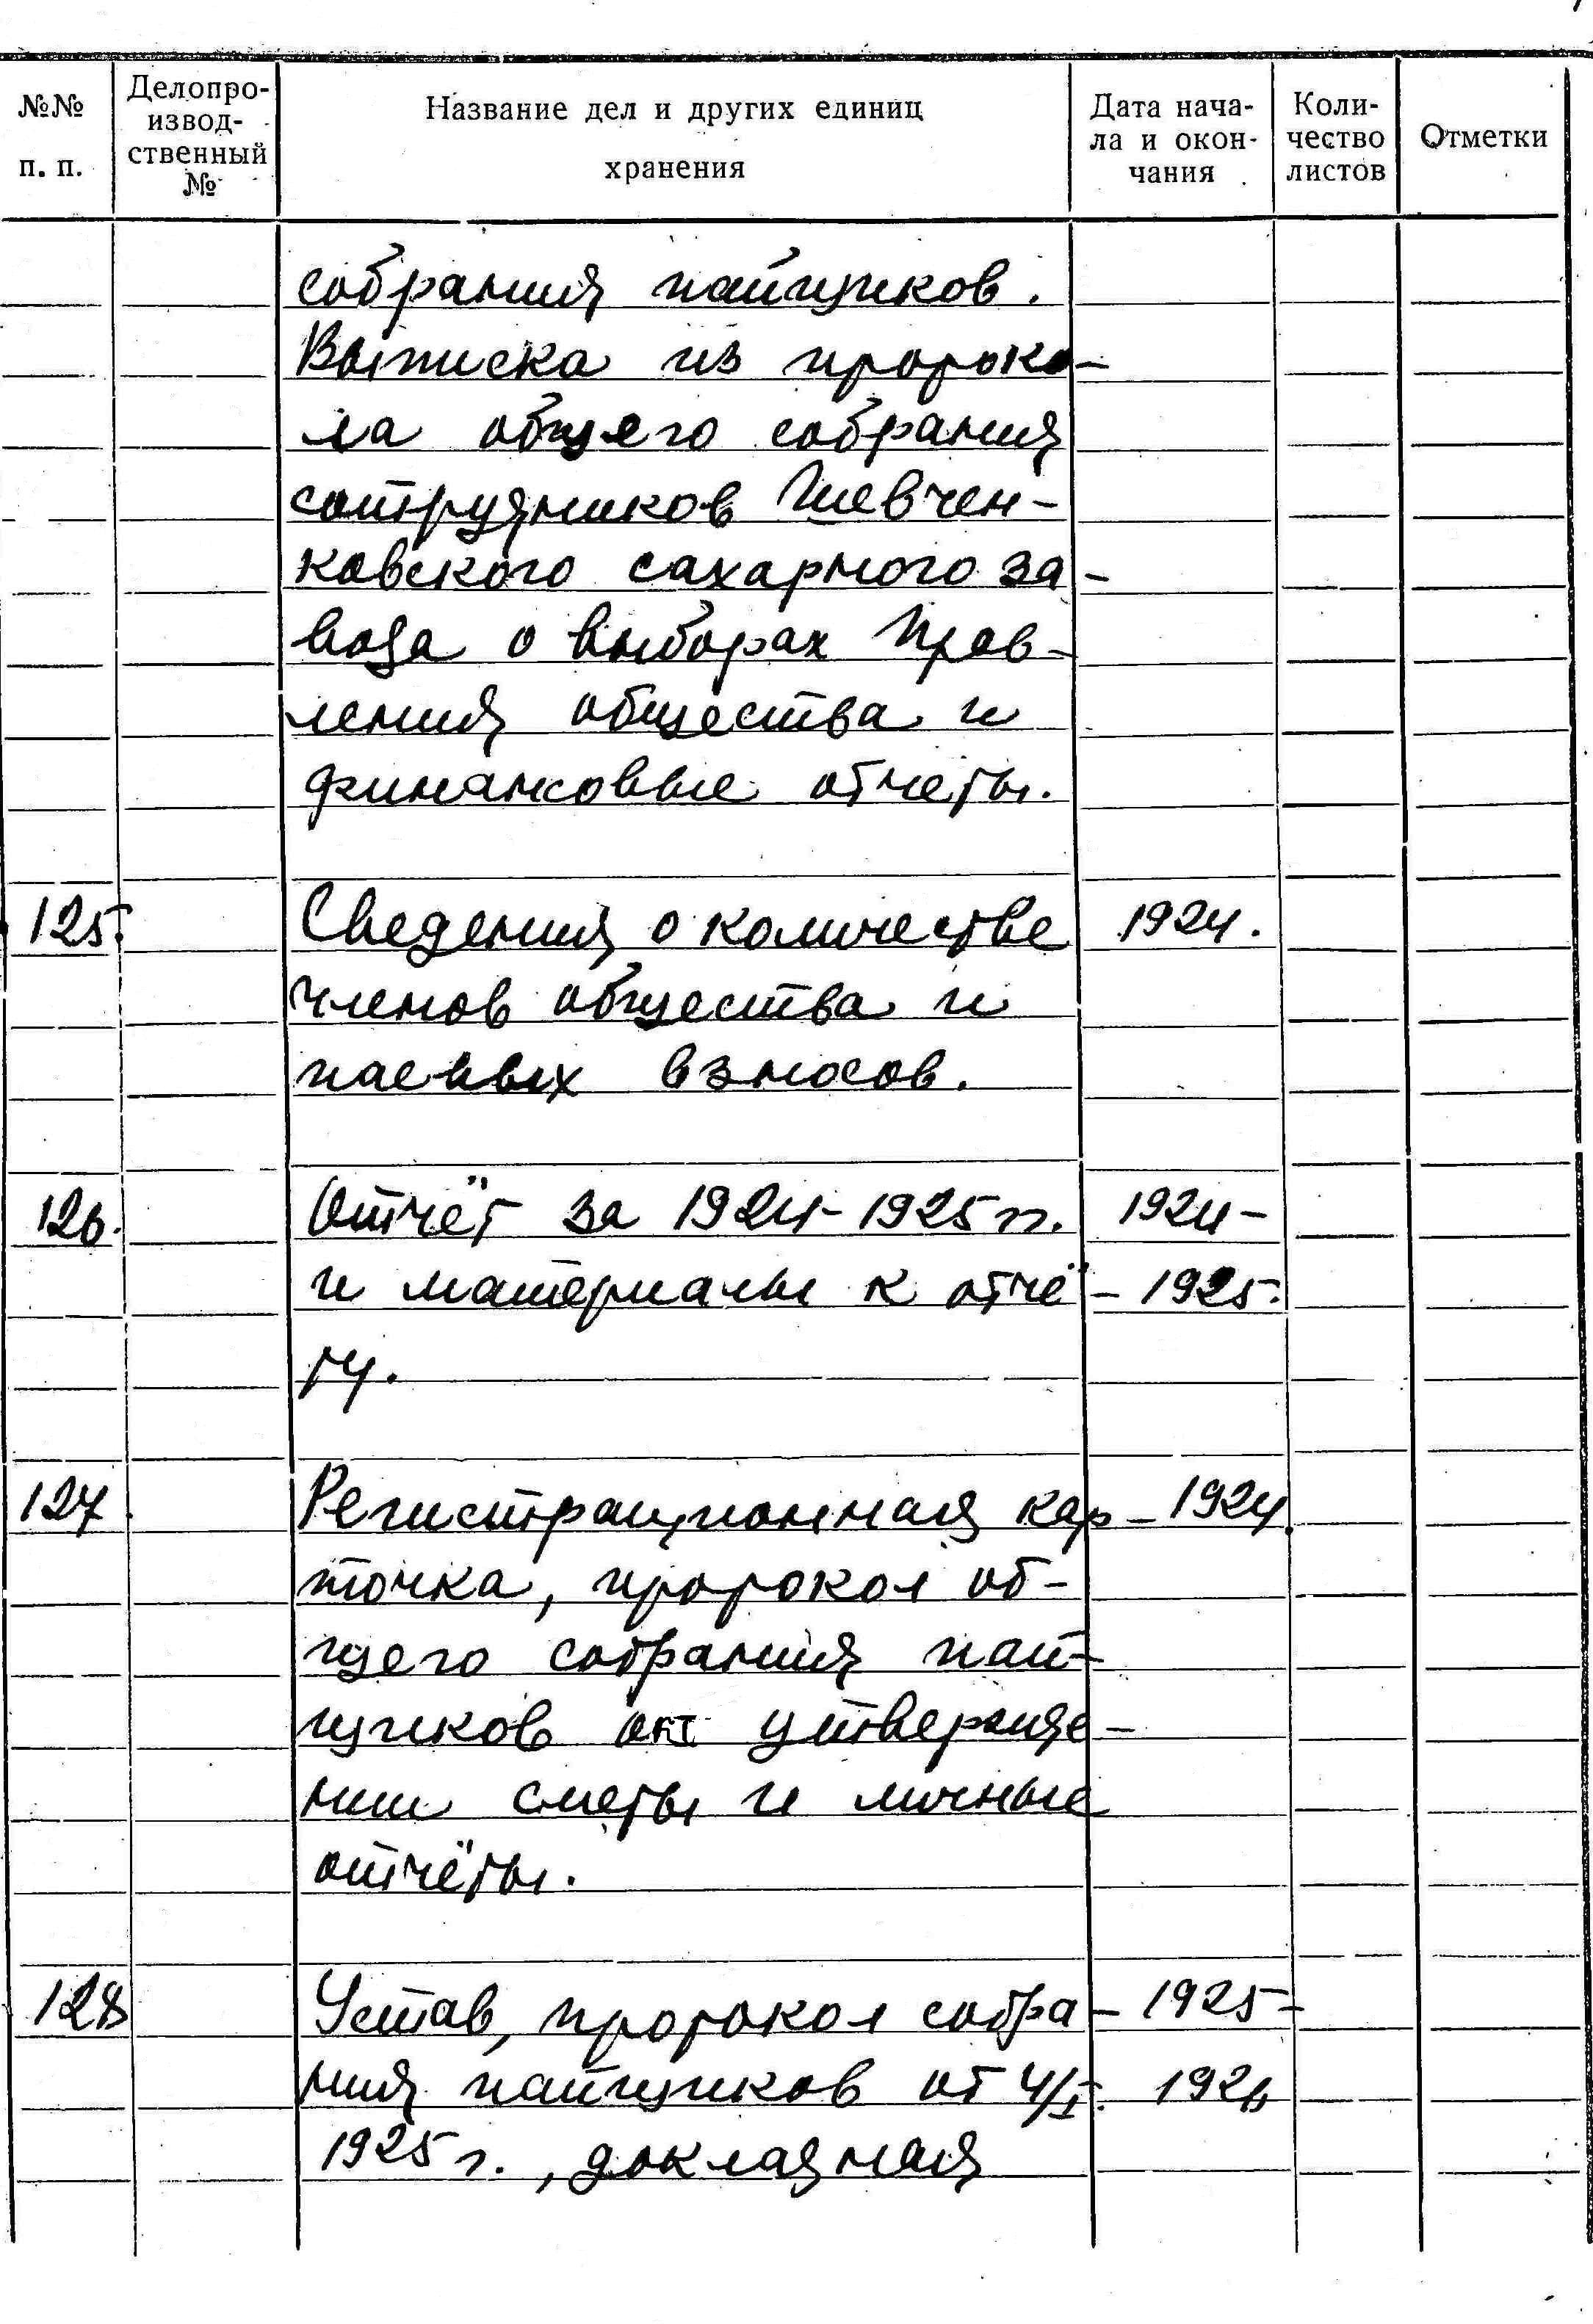 №№ п. п.
Делопро-
извод-
ственный
№
Название дел и других единиц
хранения
Дата нача-
ла и окон-
чания
Коли-
чество
листов
Отметки
собрания пайщиков.
Выписка из протоко-
ла общего собрания
сотрудников Шевчен-
ковского сахарного за-
вода о выборах Прав-
ления общества и
финансовые отчеты.
125. Сведения о количестве 1924.
членов общества и
паевых взносов.
126. Отчёт за 1924-1925 гг. 1924-
и материалы к отчё- 1925.
ту.
127. Регистрационная кар- 1924.
точка, протокол об-
щего собрания пай-
щиков об утвержде-
нии сметы и личные
отчёты.
128 Устав, протокол собра- 1925-
ния пайщиков от 4/I. 1926
1925 г., докладная